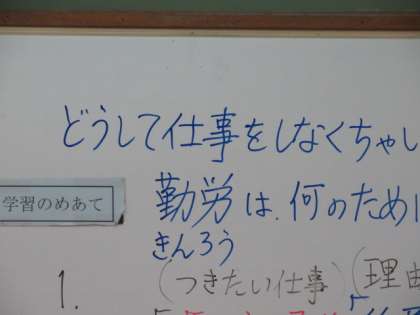 どうして仕事をしなくちゃ
学習のめあて
勤労は、何のために
きんろう
1.
(つきたい仕事)(理由